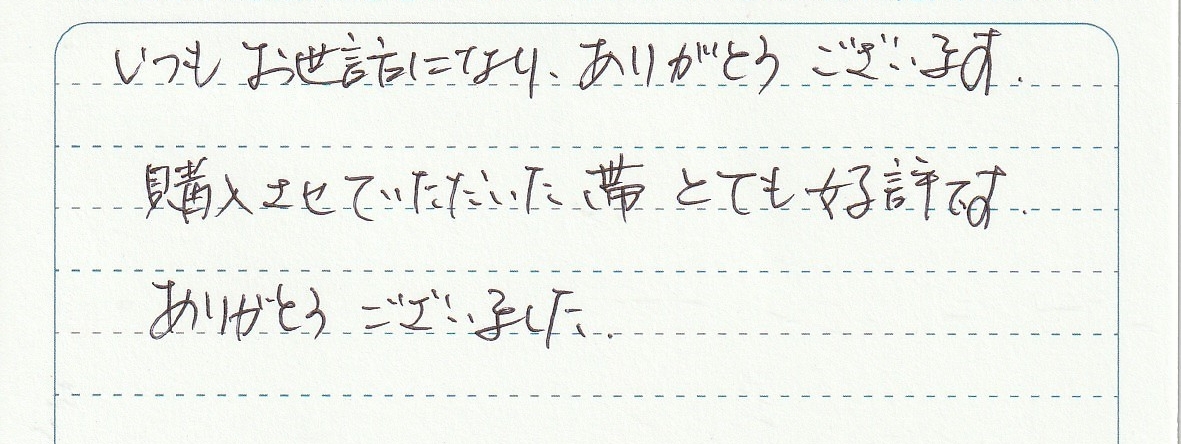 いつもお世話になり、ありがとうございます.
購入させていただいた帯とても好評です.
ありがとうございました.